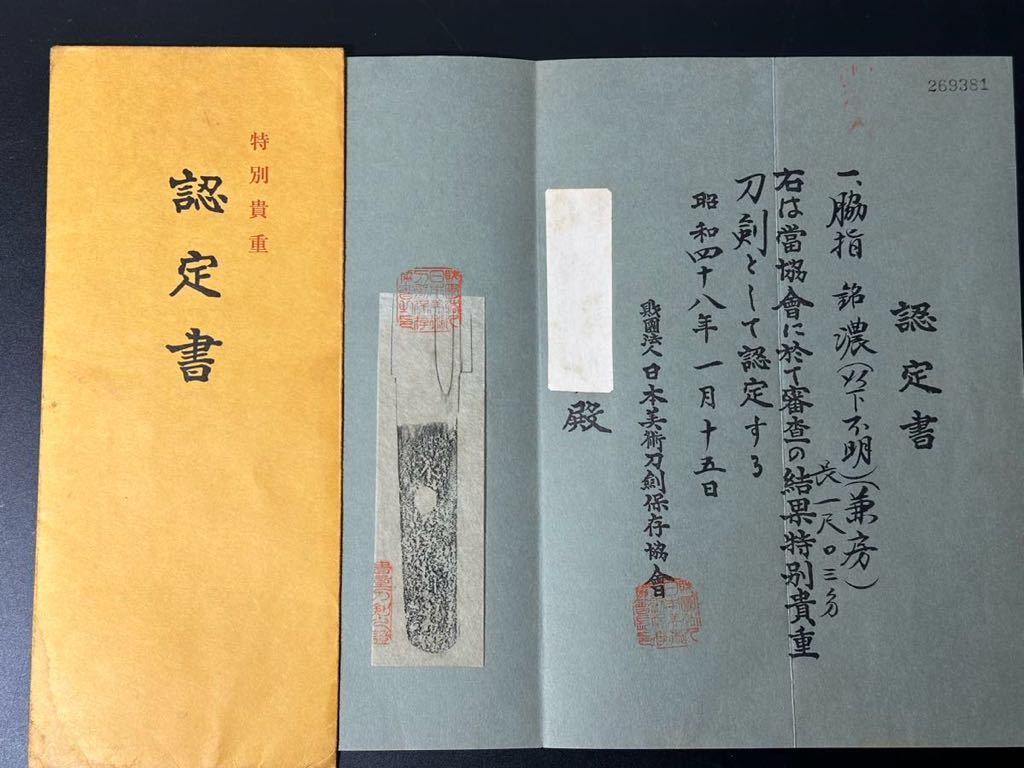 特別貴重
認定書
269381
認定書
一、脇指 銘 濃(以下不明)(兼房)
長一尺〇三分
右は當協會に於て審査の結果特別貴重
刀剣として認定する
昭和四十八年一月十五日
財團法人日本美術刀劍保存協會
殿